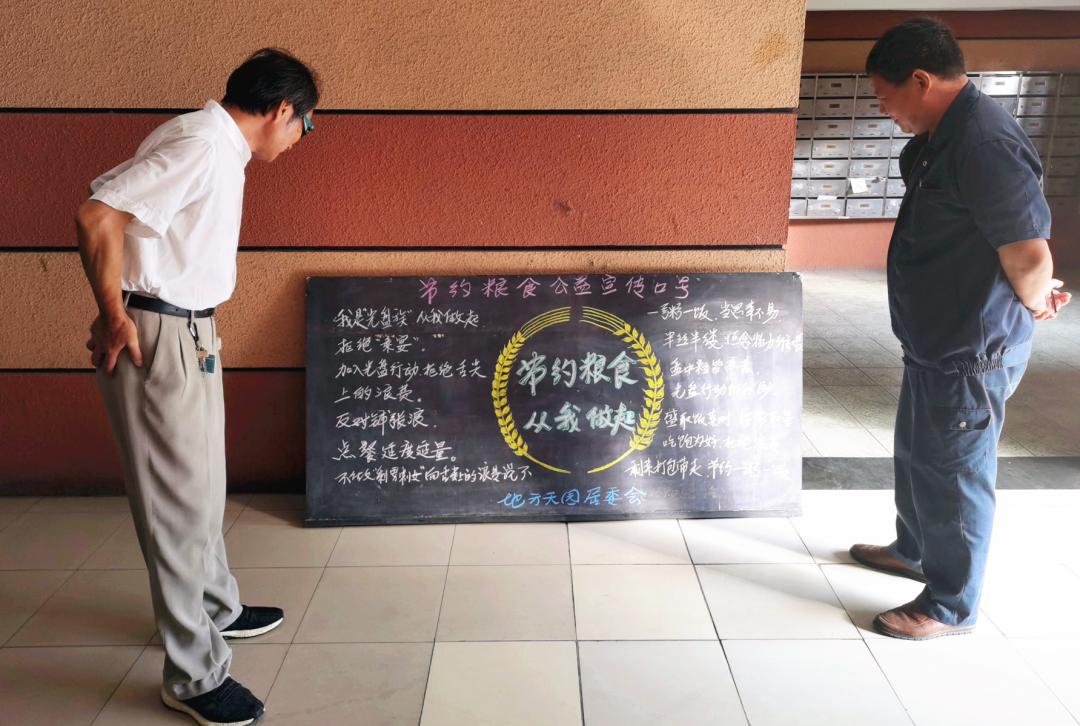 节约粮食公益宣传口号
我是"光盘族"从我做起
拒绝"剩宴"。
加入光盘行动拒绝舌尖
上的浪费。
反对铺张浪
点餐适度适量。
不做"剩男剩女"向舌尖的浪费说不
节约粮食
从我做起
一粥一饭,当思来之不易
半丝半缕,恒念物力
盘中粒皆辛苦
光盘行动
盛取饭菜时
吃饱为好,杜绝
剩菜打包带走,节约一
地方天园居委会